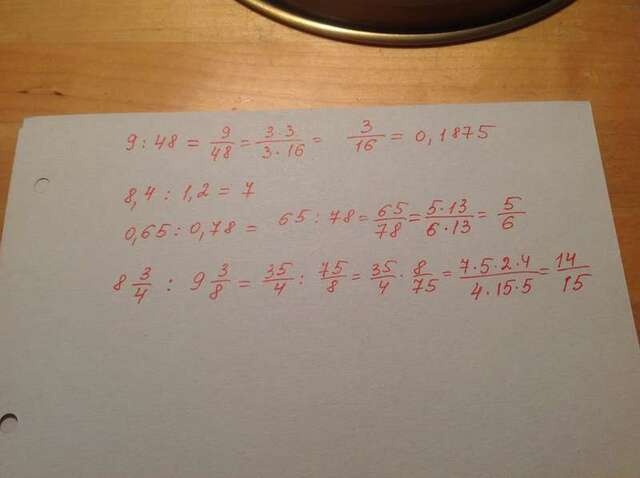 9 : 48 = 9/48 = 3·3/3·16 = 3/16 = 0,1875
8,4 : 1,2 = 7
0,65 : 0,78 = 65 : 78 = 65/78 = 5·13/6·13 = 5/6
8 3/4 : 9 3/8 = 35/4 : 75/8 = 35/4 · 8/75 = 7·5·2·4/4·15·5 = 14/15